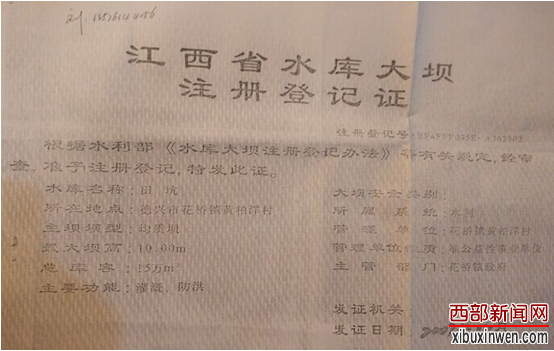 江西省水库大坝
注册登记证
注册登记号
根据水利部《水库大坝注册登记办法》等有关规定,经审
查,准予注册登记,特发此证。
水库名称:田坑
大坝安全类别:
所在地点:德兴市花桥镇黄柏洋村
所属系统:水利
主坝坝型:均质坝
管理单位:花桥镇黄柏洋村
最大坝高:10.00m
管理单位性质:准公益性事业单位
总库容:15万m³
主管部门:花桥镇政府
主要功能:灌溉、防洪
发证机关:
发证日期:
西部新闻网
xibuxinwen.com